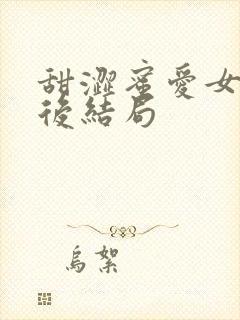 甜澀蜜愛女
後結局
烏絮